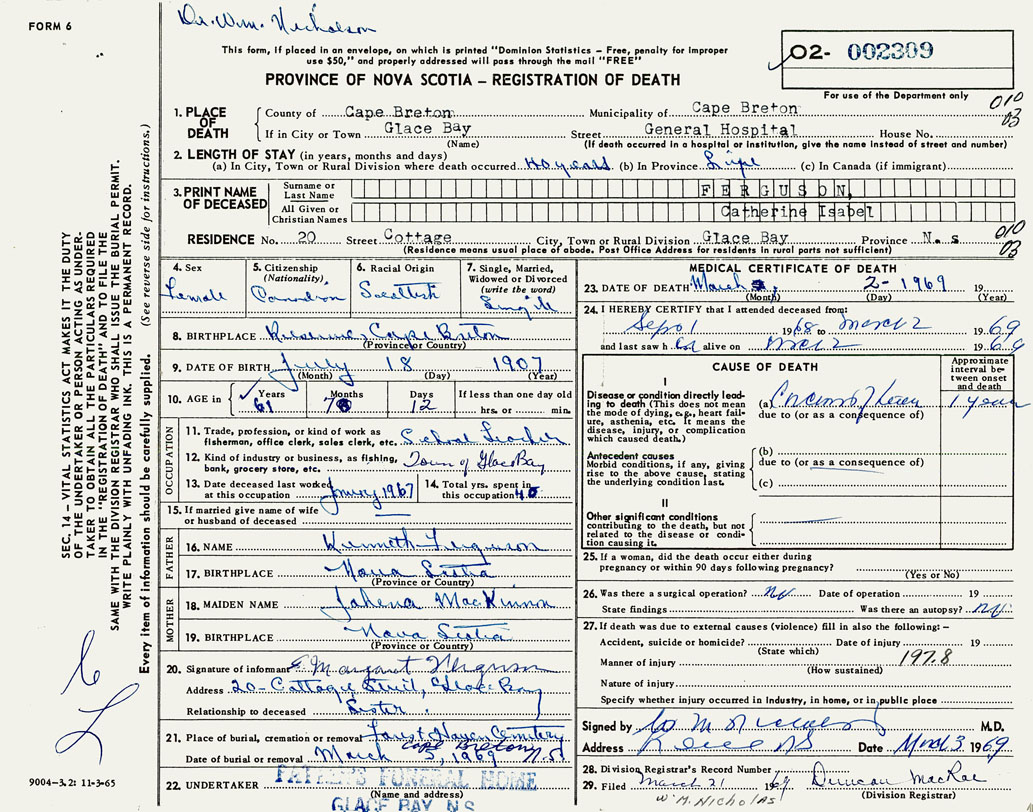 FORM 6
Dr. Wm. Nicholson
This form, if placed in an envelope, on which is printed "Dominion Statistics – Free, penalty for improper
use $50," and properly addressed will pass through the mail "FREE"
PROVINCE OF NOVA SCOTIA – REGISTRATION OF DEATH
O2- 002309
For use of the Department only
010
03
1. PLACE OF DEATH
County of Cape Breton Municipality of Cape Breton
If in City or Town Glace Bay Street General Hospital House No.
(Name) (If death occurred in a hospital or institution, give the name instead of street and number)
2. LENGTH OF STAY (in years, months and days)
(a) In City, Town or Rural Division where death occurred 40 years (b) In Province Life (c) In Canada (if immigrant)
3. PRINT NAME OF DECEASED
Surname or Last Name FERGUSON,
All Given or Christian Names Catherine Isabel
RESIDENCE No. 20 Street Cottage City, Town or Rural Division Glace Bay Province N. s
(Residence means usual place of abode. Post Office Address for residents in rural parts not sufficient)
010
03
4. Sex
Female
5. Citizenship (Nationality)
Canadian
6. Racial Origin
Scottish
7. Single, Married, Widowed or Divorced (write the word)
Single
8. BIRTHPLACE Reserve, Cape Breton
(Province or Country)
9. DATE OF BIRTH July 18 1907
(Month) (Day) (Year)
10. AGE in
Years Months Days If less than one day old
61 7 12 hrs. or min.
OCCUPATION
11. Trade, profession, or kind of work as
fisherman, office clerk, sales clerk, etc. School Teacher
12. Kind of industry or business, as fishing,
bank, grocery store, etc. Town of Glace Bay
13. Date deceased last worked
at this occupation 1967
14. Total yrs. spent in
this occupation 40
15. If married give name of wife
or husband of deceased
FATHER
16. NAME Kenneth Ferguson
17. BIRTHPLACE Nova Scotia
(Province or Country)
MOTHER
18. MAIDEN NAME MacKinnon
19. BIRTHPLACE Nova Scotia
(Province or Country)
20. Signature of informant Margaret Ferguson
Address 20 - Cottage Street, Glace Bay
Relationship to deceased Sister.
21. Place of burial, cremation or removal Forest Haven Cemetery
Cape Breton N.S.
Date of burial or removal March 5, 1969
22. UNDERTAKER FUNERAL HOME
(Name and address)
GLACE BAY, N.S.
MEDICAL CERTIFICATE OF DEATH
23. DATE OF DEATH March 2 - 1969 19
(Month) (Day) (Year)
24. I HEREBY CERTIFY that I attended deceased from:
Sept 1 1968 to March 2 1969
and last saw her alive on March 2 1969
CAUSE OF DEATH
Approximate interval between onset and death
I
Disease or condition directly leading to death (This does not mean the mode of dying, e.g., heart failure, asthenia, etc. It means the disease, injury, or complication which caused death.)
(a) 1 year
due to (or as a consequence of)
Antecedent causes
Morbid conditions, if any, giving rise to the above cause, stating the underlying condition last.
(b)
due to (or as a consequence of)
(c)
II
Other significant conditions
contributing to the death, but not related to the disease or condition causing it.
25. If a woman, did the death occur either during
pregnancy or within 90 days following pregnancy?
(Yes or No)
26. Was there a surgical operation? No Date of operation 19
State findings Was there an autopsy? No
27. If death was due to external causes (violence) fill in also the following:–
Accident, suicide or homicide? Date of injury 19
(State which)
Manner of injury 197.8
(How sustained)
Nature of injury
Specify whether injury occurred in industry, in home, or in public place
Signed by M.D.
Address Date March 3 1969
28. Division Registrar's Record Number
29. Filed March 21 1969 Duncan MacRae
(Division Registrar)
W. M. Nicholas
SEC. 14 – VITAL STATISTICS ACT MAKES IT THE DUTY
OF THE UNDERTAKER OR PERSON ACTING AS UNDER-
TAKER TO OBTAIN ALL THE PARTICULARS REQUIRED
IN THE "REGISTRATION OF DEATH" AND TO FILE THE
SAME WITH THE DIVISION REGISTRAR WHO SHALL ISSUE THE BURIAL PERMIT.
WRITE PLAINLY WITH UNFADING INK. THIS IS A PERMANENT RECORD.
Every item of information should be carefully supplied. (See reverse side for instructions.)
9004-3.2: 11-3-65